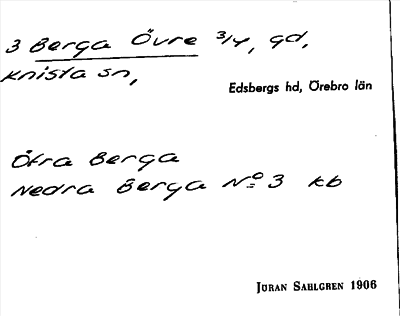 3 Berga Övre 3/4, gd,
Knista sn,
Edsbergs hd, Örebro län
Öfra Berga
Nedra Berga No 3 kb
Jöran Sahlgren 1906